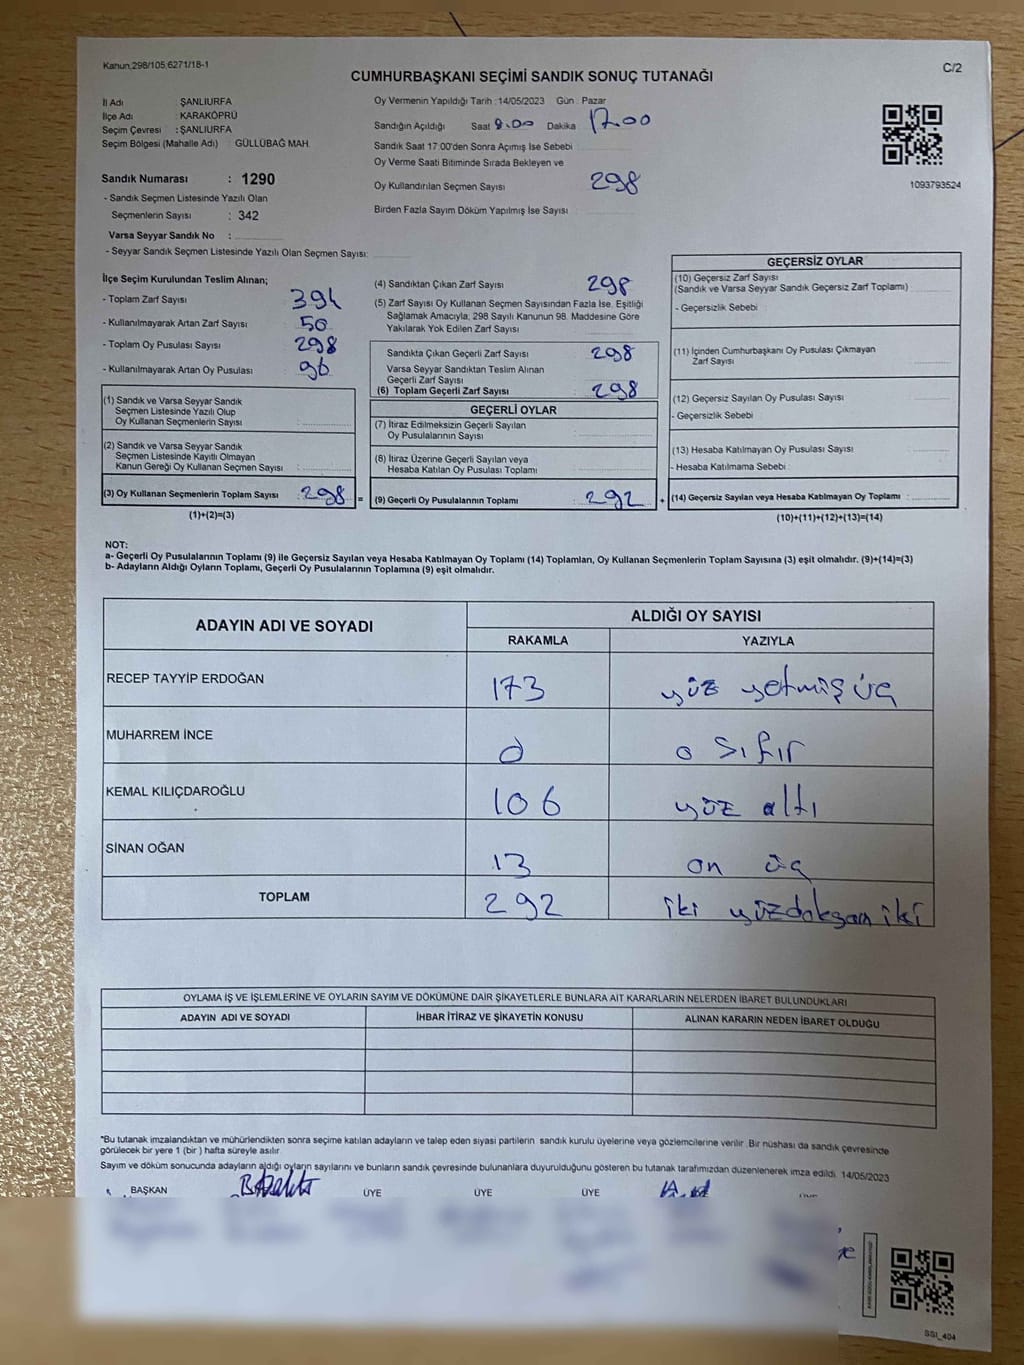 Kanun.298/105,6271/18-1
C/2
CUMHURBAŞKANI SEÇİMİ SANDIK SONUÇ TUTANAĞI
İl Adı : ŞANLIURFA
İlçe Adı : KARAKÖPRÜ
Seçim Çevresi : ŞANLIURFA
Seçim Bölgesi (Mahalle Adı) : GÜLLÜBAĞ MAH.
Sandık Numarası : 1290
- Sandık Seçmen Listesinde Yazılı Olan
Seçmenlerin Sayısı : 342
Varsa Seyyar Sandık No :
- Seyyar Sandık Seçmen Listesinde Yazılı Olan Seçmen Sayısı:
Oy Vermenin Yapıldığı Tarih : 14/05/2023 Gün : Pazar
Sandığın Açıldığı Saat 8.00 Dakika 17.00
Sandık Saat 17:00'den Sonra Açımış İse Sebebi
Oy Verme Saati Bitiminde Sırada Bekleyen ve
Oy Kullandırılan Seçmen Sayısı 298
Birden Fazla Sayım Döküm Yapılmış İse Sayısı
1093793524
İlçe Seçim Kurulundan Teslim Alınan;
- Toplam Zarf Sayısı 394
- Kullanılmayarak Artan Zarf Sayısı 50
- Toplam Oy Pusulası Sayısı 298
- Kullanılmayarak Artan Oy Pusulası 96
(1) Sandık ve Varsa Seyyar Sandık
Seçmen Listesinde Yazılı Olup
Oy Kullanan Seçmenlerin Sayısı
(2) Sandık ve Varsa Seyyar Sandık
Seçmen Listesinde Kayıtlı Olmayan
Kanun Gereği Oy Kullanan Seçmen Sayısı
(3) Oy Kullanan Seçmenlerin Toplam Sayısı : 298 =
(1)+(2)=(3)
(4) Sandıktan Çıkan Zarf Sayısı 298
(5) Zarf Sayısı Oy Kullanan Seçmen Sayısından Fazla İse, Eşitliği
Sağlamak Amacıyla, 298 Sayılı Kanunun 98. Maddesine Göre
Yakılarak Yok Edilen Zarf Sayısı
Sandıkta Çıkan Geçerli Zarf Sayısı 298
Varsa Seyyar Sandıktan Teslim Alınan
Geçerli Zarf Sayısı
(6) Toplam Geçerli Zarf Sayısı 298
GEÇERLİ OYLAR
(7) İtiraz Edilmeksizin Geçerli Sayılan
Oy Pusulalarının Sayısı
(8) İtiraz Üzerine Geçerli Sayılan veya
Hesaba Katılan Oy Pusulası Toplamı
(9) Geçerli Oy Pusulalarının Toplamı : 292 +
GEÇERSİZ OYLAR
(10) Geçersiz Zarf Sayısı
(Sandık ve Varsa Seyyar Sandık Geçersiz Zarf Toplamı)
- Geçersizlik Sebebi
(11) İçinden Cumhurbaşkanı Oy Pusulası Çıkmayan
Zarf Sayısı
(12) Geçersiz Sayılan Oy Pusulası Sayısı
- Geçersizlik Sebebi
(13) Hesaba Katılmayan Oy Pusulası Sayısı
- Hesaba Katılmama Sebebi :
(14) Geçersiz Sayılan veya Hesaba Katılmayan Oy Toplamı :
(10)+(11)+(12)+(13)=(14)
NOT:
a- Geçerli Oy Pusulalarının Toplamı (9) ile Geçersiz Sayılan veya Hesaba Katılmayan Oy Toplamı (14) Toplamları, Oy Kullanan Seçmenlerin Toplam Sayısına (3) eşit olmalıdır. (9)+(14)=(3)
b- Adayların Aldığı Oyların Toplamı, Geçerli Oy Pusulalarının Toplamına (9) eşit olmalıdır.
ADAYIN ADI VE SOYADI ALDIĞI OY SAYISI
RAKAMLA YAZIYLA
RECEP TAYYİP ERDOĞAN 173 yüz yetmiş üç
MUHARREM İNCE 0 0 sıfır
KEMAL KILIÇDAROĞLU 106 yüz altı
SİNAN OĞAN 13 on üç
TOPLAM 292 iki yüzdoksan iki
OYLAMA İŞ VE İŞLEMLERİNE VE OYLARIN SAYIM VE DÖKÜMÜNE DAİR ŞİKAYETLERLE BUNLARA AİT KARARLARIN NELERDEN İBARET BULUNDUKLARI
ADAYIN ADI VE SOYADI İHBAR İTİRAZ VE ŞİKAYETİN KONUSU ALINAN KARARIN NEDEN İBARET OLDUĞU
*Bu tutanak imzalandıktan ve mühürlendikten sonra seçime katılan adayların ve talep eden siyasi partilerin sandık kurulu üyelerine veya gözlemcilerine verilir. Bir nüshası da sandık çevresinde
görülecek bir yere 1 (bir ) hafta süreyle asılır.
Sayım ve döküm sonucunda adayların aldığı oyların sayılarını ve bunların sandık çevresinde bulunanlara duyurulduğunu gösteren bu tutanak tarafımızdan düzenlenerek imza edildi. 14/05/2023
BAŞKAN ÜYE ÜYE ÜYE
SSI_404